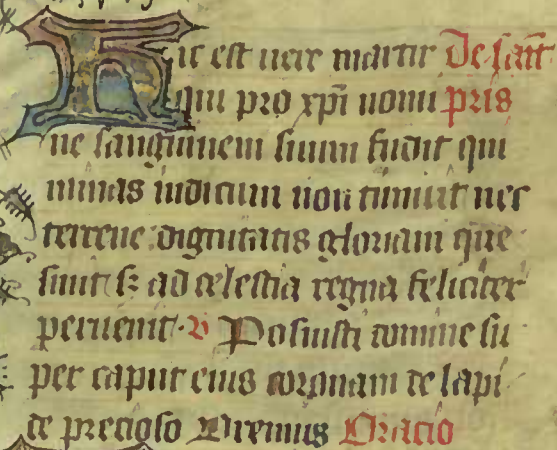 Hic est uere martir De sant
qui pro xpi nomi pris
ne sanguinem suum fudit qui
minas iudicum non timuit nec
terrene dignitatis gloriam que
siuit s; ad celestia regna feliciter
peruenit · v Posuisti domine su
per caput eius coronam de lapi
de precioso Oremus Oracio